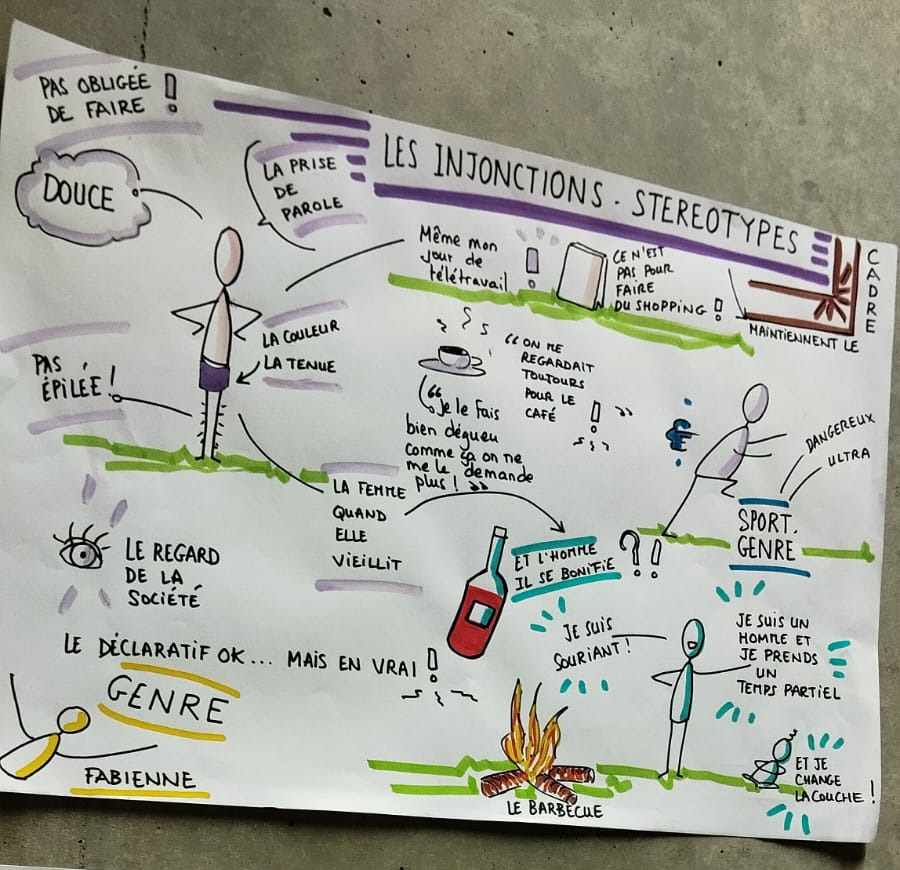 PAS OBLIGÉE
DE FAIRE !
DOUCE
LA PRISE
DE
PAROLE
LES INJONCTIONS. STEREOTYPES
CADRE
MAINTIENNENT LE
Même mon
jour de
télétravail !
CE N'EST
PAS POUR
FAIRE
DU SHOPPING !
LA COULEUR
LA TENUE
PAS
ÉPILÉE !
“ ON ME
REGARDAIT
TOUJOURS
POUR LE
CAFÉ ! ”
“ Je le fais
bien dégueu
comme ça on ne
me le demande
plus ! ”
DANGEREUX
ULTRA
SPORT.
GENRE
LA FEMME
QUAND
ELLE
VIEILLIT
ET L'HOMME
IL SE BONIFIE ?!
LE REGARD
DE LA
SOCIÉTÉ
LE DÉCLARATIF OK... MAIS EN VRAI !
GENRE
FABIENNE
JE SUIS
SOURIANT !
JE SUIS UN
HOMME ET
JE PRENDS
UN
TEMPS PARTIEL
ET JE
CHANGE
LA COUCHE !
LE BARBECUE